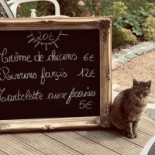 20€
Crème de chicons 6€
Poivrons farcis 12€
Tartelette aux fraises
5€